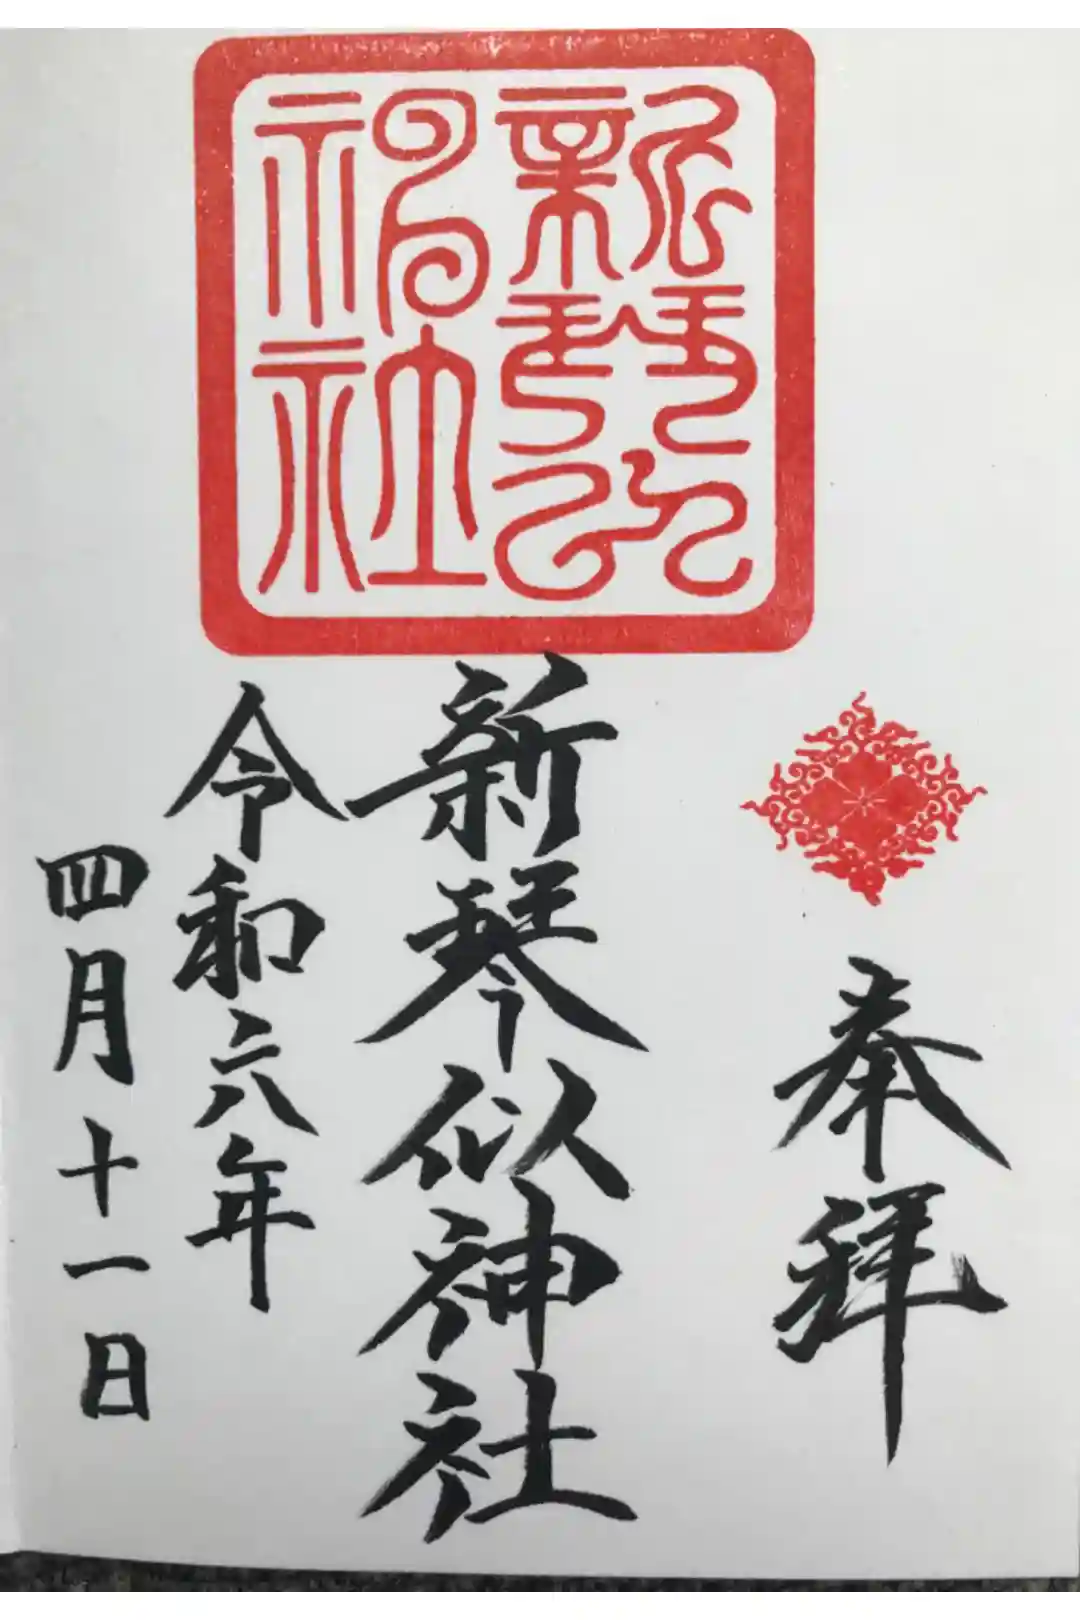 奉拝
新琴似神社
新琴似神社
令和六年
四月十一日